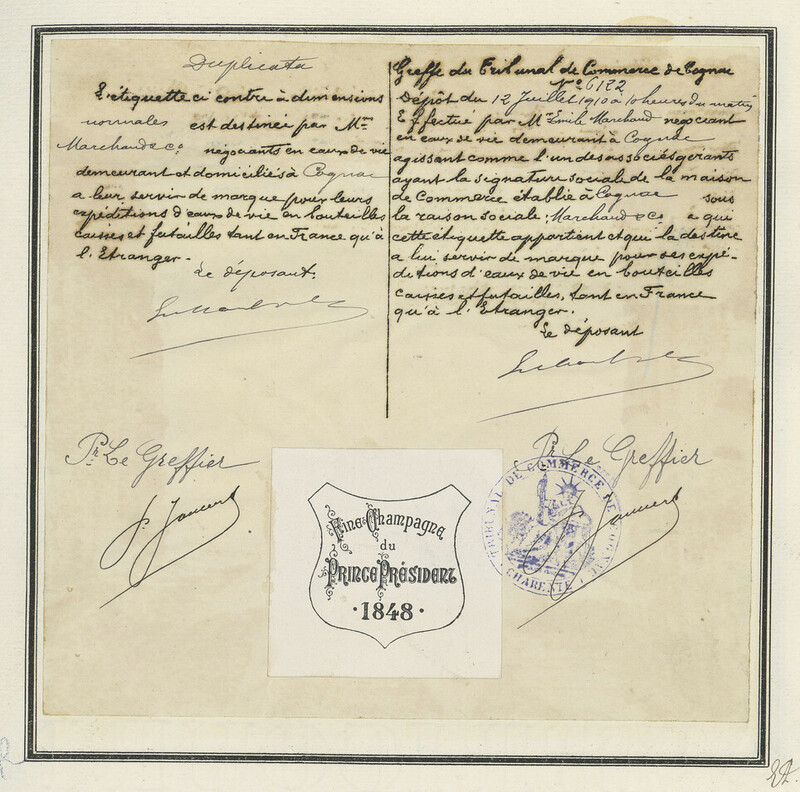 Duplicata
L'étiquette ci contre à dimensions
normales est destinée par Mm
Marchand & Co négociants en eaux de vie
demeurant et domiciliés à Cognac
a leur servir de marque pour leurs
expéditions d'eaux de vie en bouteilles
caisses et futailles tant en France qu'à
l'Etranger.
Le déposant.
Pr Le Greffier
Greffe du Tribunal de Commerce de Cognac
No 6122
Dépôt du 12 Juillet 1910 à 10 heures du matin
Effectué par Mr Emile Marchand négociant
en eaux de vie demeurant à Cognac
agissant comme l'un des associés gérants
ayant la signature sociale de la maison
de Commerce établie à Cognac sous
la raison sociale: Marchand & Co e qui
cette étiquette appartient et qui la destine
a lui servir de marque pour ses expé-
ditions d'eaux de vie en bouteilles
caisses et futailles, tant en France
qu'à l'Etranger.
Le déposant
Pr Le Greffier
Fine Champagne
du
Prince Président
·1848·
TRIBUNAL DE COMMERCE DE COGNAC
CHARENTE